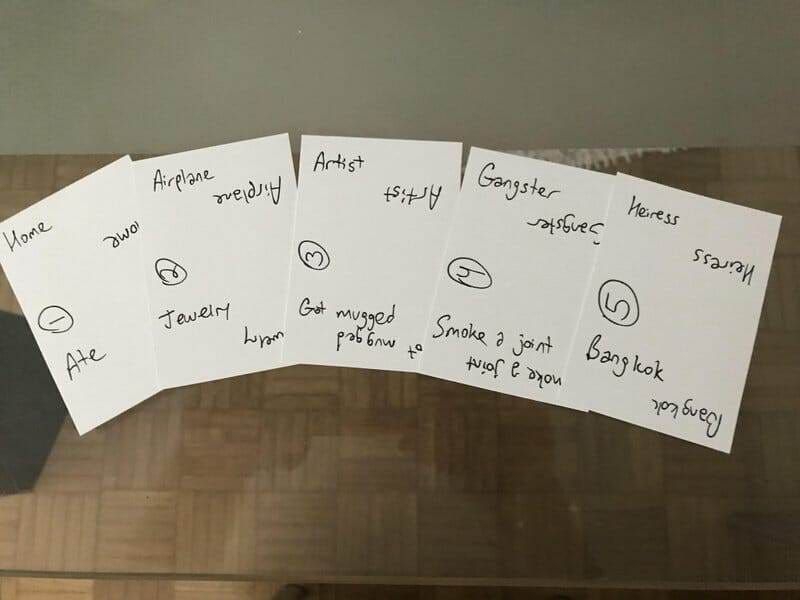 Home
ome
1
Ate
Airplane
Airplane
2
Jewelry
welry
Artist
Artist
3
Got mugged
ot mugged
Gangster
angster
4
Smoke a joint
moke a joint
Heiress
Heiress
5
Bangkok
Bangkok